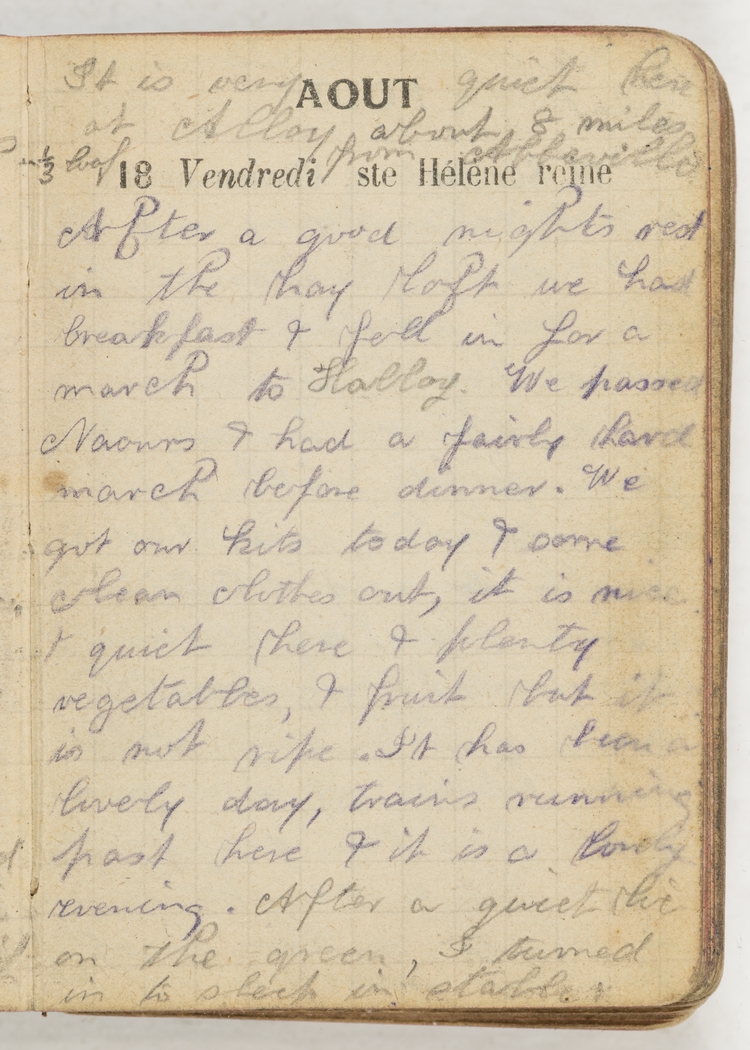 It is very quiet here
AOUT
at Alloy about 8 miles
from Abbeville.
1/3 loaf
18 Vendredi ste Hélène reine
After a good nights rest
in the hay loft we had
breakfast & fell in for a
march to Halloy. We passed
Naours & had a fairly hard
march before dinner. We
got our kits today & some
clean clothes out, it is nice
& quiet here & plenty
vegetables, & fruit but it
is not ripe. It has been a
lovely day, trains running
past here & it is a lovely
evening. After a quiet lie
on the green, I turned
in to sleep in stable